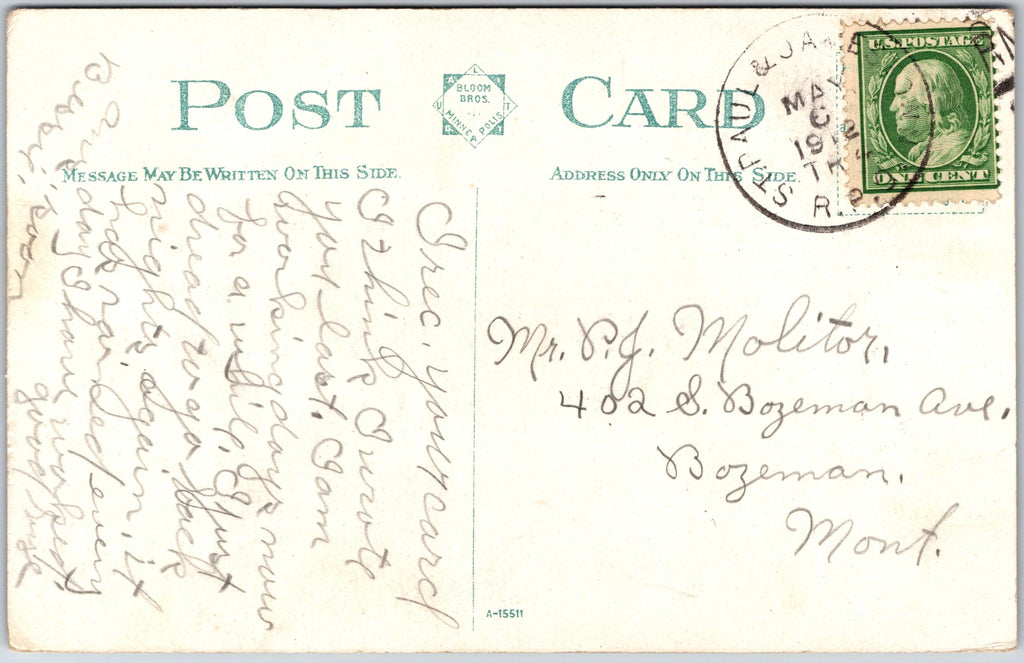 POST CARD
A
BLOOM BROS.
U
T
MINNEAPOLIS
MESSAGE MAY BE WRITTEN ON THIS SIDE.
ADDRESS ONLY ON THIS SIDE.
ST. PAUL & JA
MAY
1912
TR
R.P.
U.S. POSTAGE
ONE CENT
I rec. your card
I think I wrote
you last. I am
working days now
for a while. I just
dread to go back
nights again, it
has rained every
day I have worked
good bye
soon
Mr. P.J. Molitor,
402 S. Bozeman Ave.
Bozeman.
Mont.
A-15511